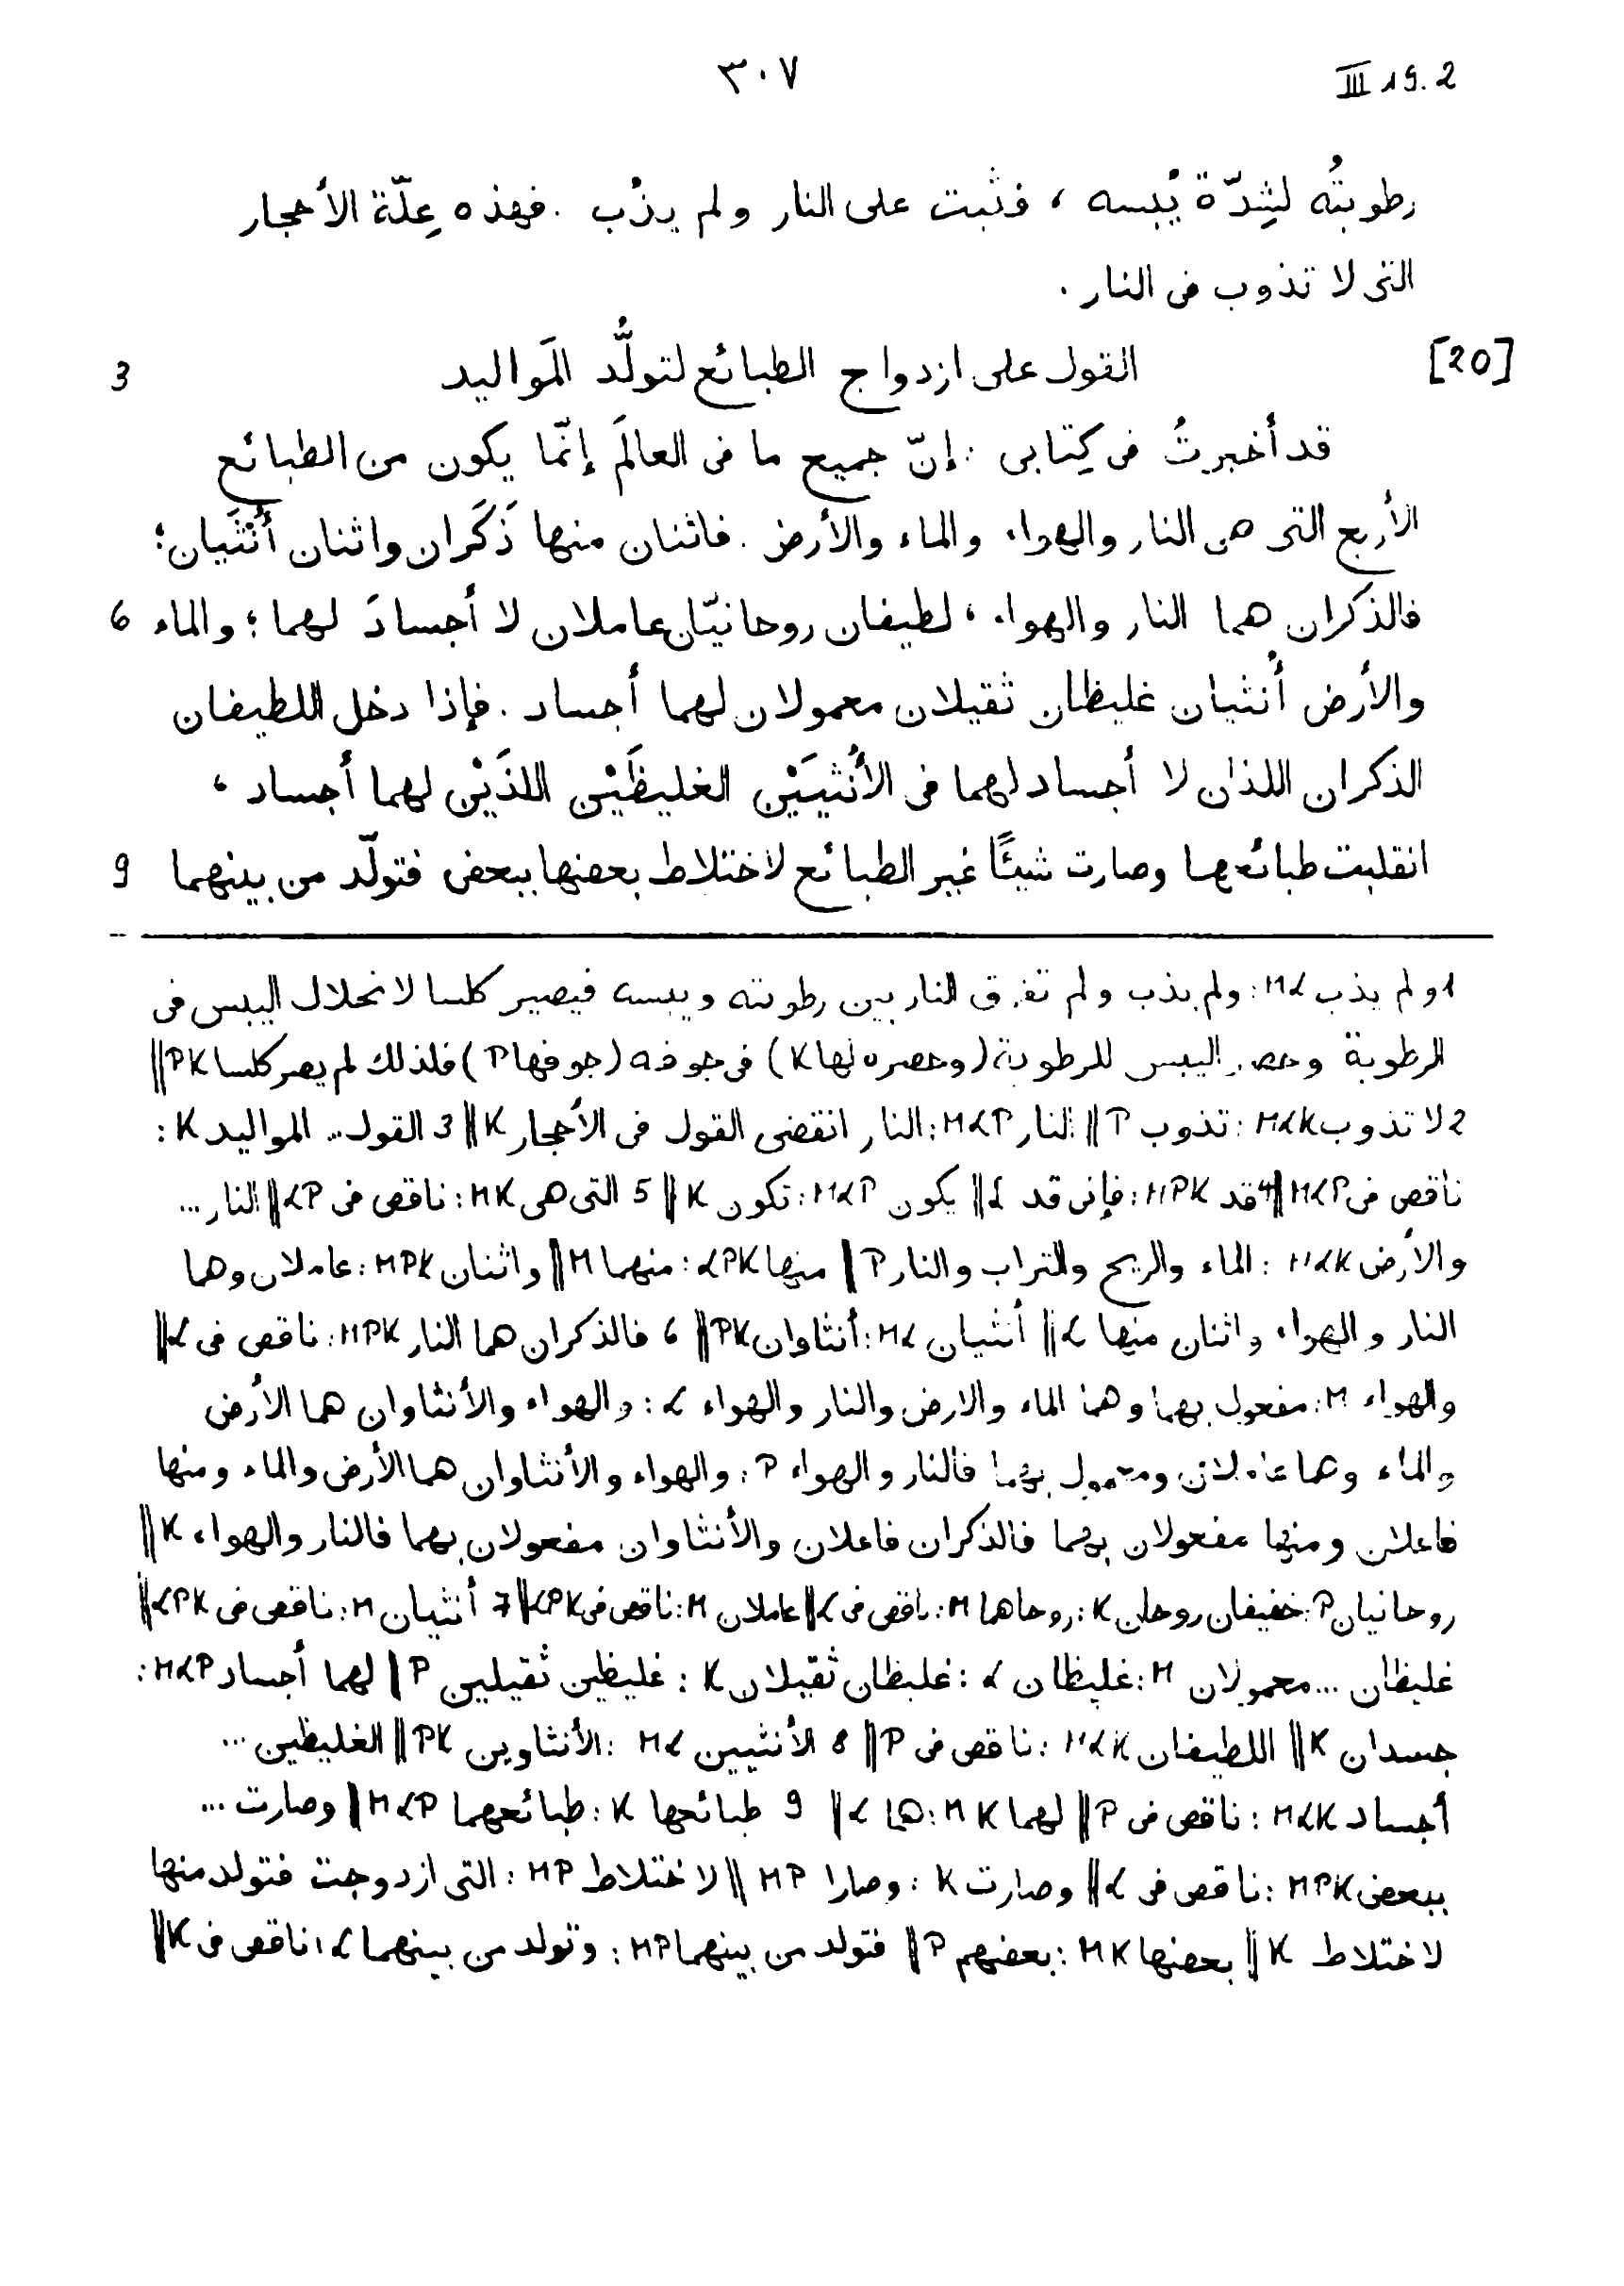 ٣٠٧ III 19.2
رطوبتُه لشِدّة يُبسه ، فثبت على النار ولم يذُب . فهذه عِلّة الأحجار
التى لا تذوب فى النار .
[20] القول على ازدواج الطبائع لتولُّد المَواليد 3
قد أخبرتُ فى كِتابى : إنّ جميع ما فى العالَم إنّما يكون من الطبائع
الأربع التى هى النار والهواء والماء والأرض . فاثنان منها ذَكَران واثنان أُنْثَيان ؛
فالذكران هما النار والهواء ، لطيفان روحانيّان عاملان لا أجسادَ لهما ؛ والماء 6
والأرض أُنثيان غليظان ثقيلان معمولان لهما أجساد . فإذا دخل اللطيفان
الذكران اللذان لا أجساد لهما فى الأُنثيَيْن الغليظَيْن اللذَيْن لهما أجساد ،
انقلبت طبائعها وصارت شيئًا غير الطبائع لاختلاط بعضها ببعض فتولّد من بينهما 9
1 ولم يذب Mα : ولم يذب ولم تفرق النار بين رطوبته ويبسه فيصير كلسا لانحلال اليبس فى
الرطوبة وحصر اليبس للرطوبة (وحصره لها K) فى جوفه (جوفها P) فلذلك لم يصر كلسا PK ||
2 لا تذوب MαK : تذوب P || النار MαP : النار انقضى القول فى الأحجار K || 3 القول … المواليد K :
ناقص فى MαP || 4 قد MPK : فإنى قد α || يكون MαP : تكون K || 5 التى هى MK : ناقص فى αP || النار …
والأرض MαK : الماء والريح والتراب والنار P || منها αPK : منهما M || واثنان MPK : عاملان وهما
النار والهواء واثنان منها α || أنثيان Mα : أنثاوان PK || 6 فالذكران هما النار MPK : ناقص فى α ||
والهواء M : مفعول بهما وهما الماء والارض والنار والهواء α : والهواء والأنثاوان هما الأرض
والماء وهما عاملان ومعمول بهما فالنار والهواء P : والهواء والأنثاوان هما الأرض والماء ومنها
فاعلان ومنها مفعولان بهما فالذكران فاعلان والأنثاوان مفعولان بهما فالنار والهواء K ||
روحانيان P : خفيفان روحان K : روحاهما M : ناقص فى α || عاملان M : ناقص فى αPK || 7 أنثيان M : ناقص فى αPK ||
غليظان … معمولان M : غليظان α : غليظان ثقيلان K : غليظين ثقيلين P || لهما أجساد MαP :
جسدان K || اللطيفان MαK : ناقص فى P || 8 الأنثيين Mα : الأنثاوين PK || الغليظين …
أجساد MαK : ناقص فى P || لهما MK : لها α || 9 طبائعها K : طبائعهما MαP || وصارت …
ببعض MPK : ناقص فى α || وصارت K : وصارا MP || لاختلاط MP : التى ازدوجت فتولد منها
لاختلاط K || بعضها MK : بعضهم P || فتولد من بينهما MP : وتولد من بينهما α ، ناقص فى K ||